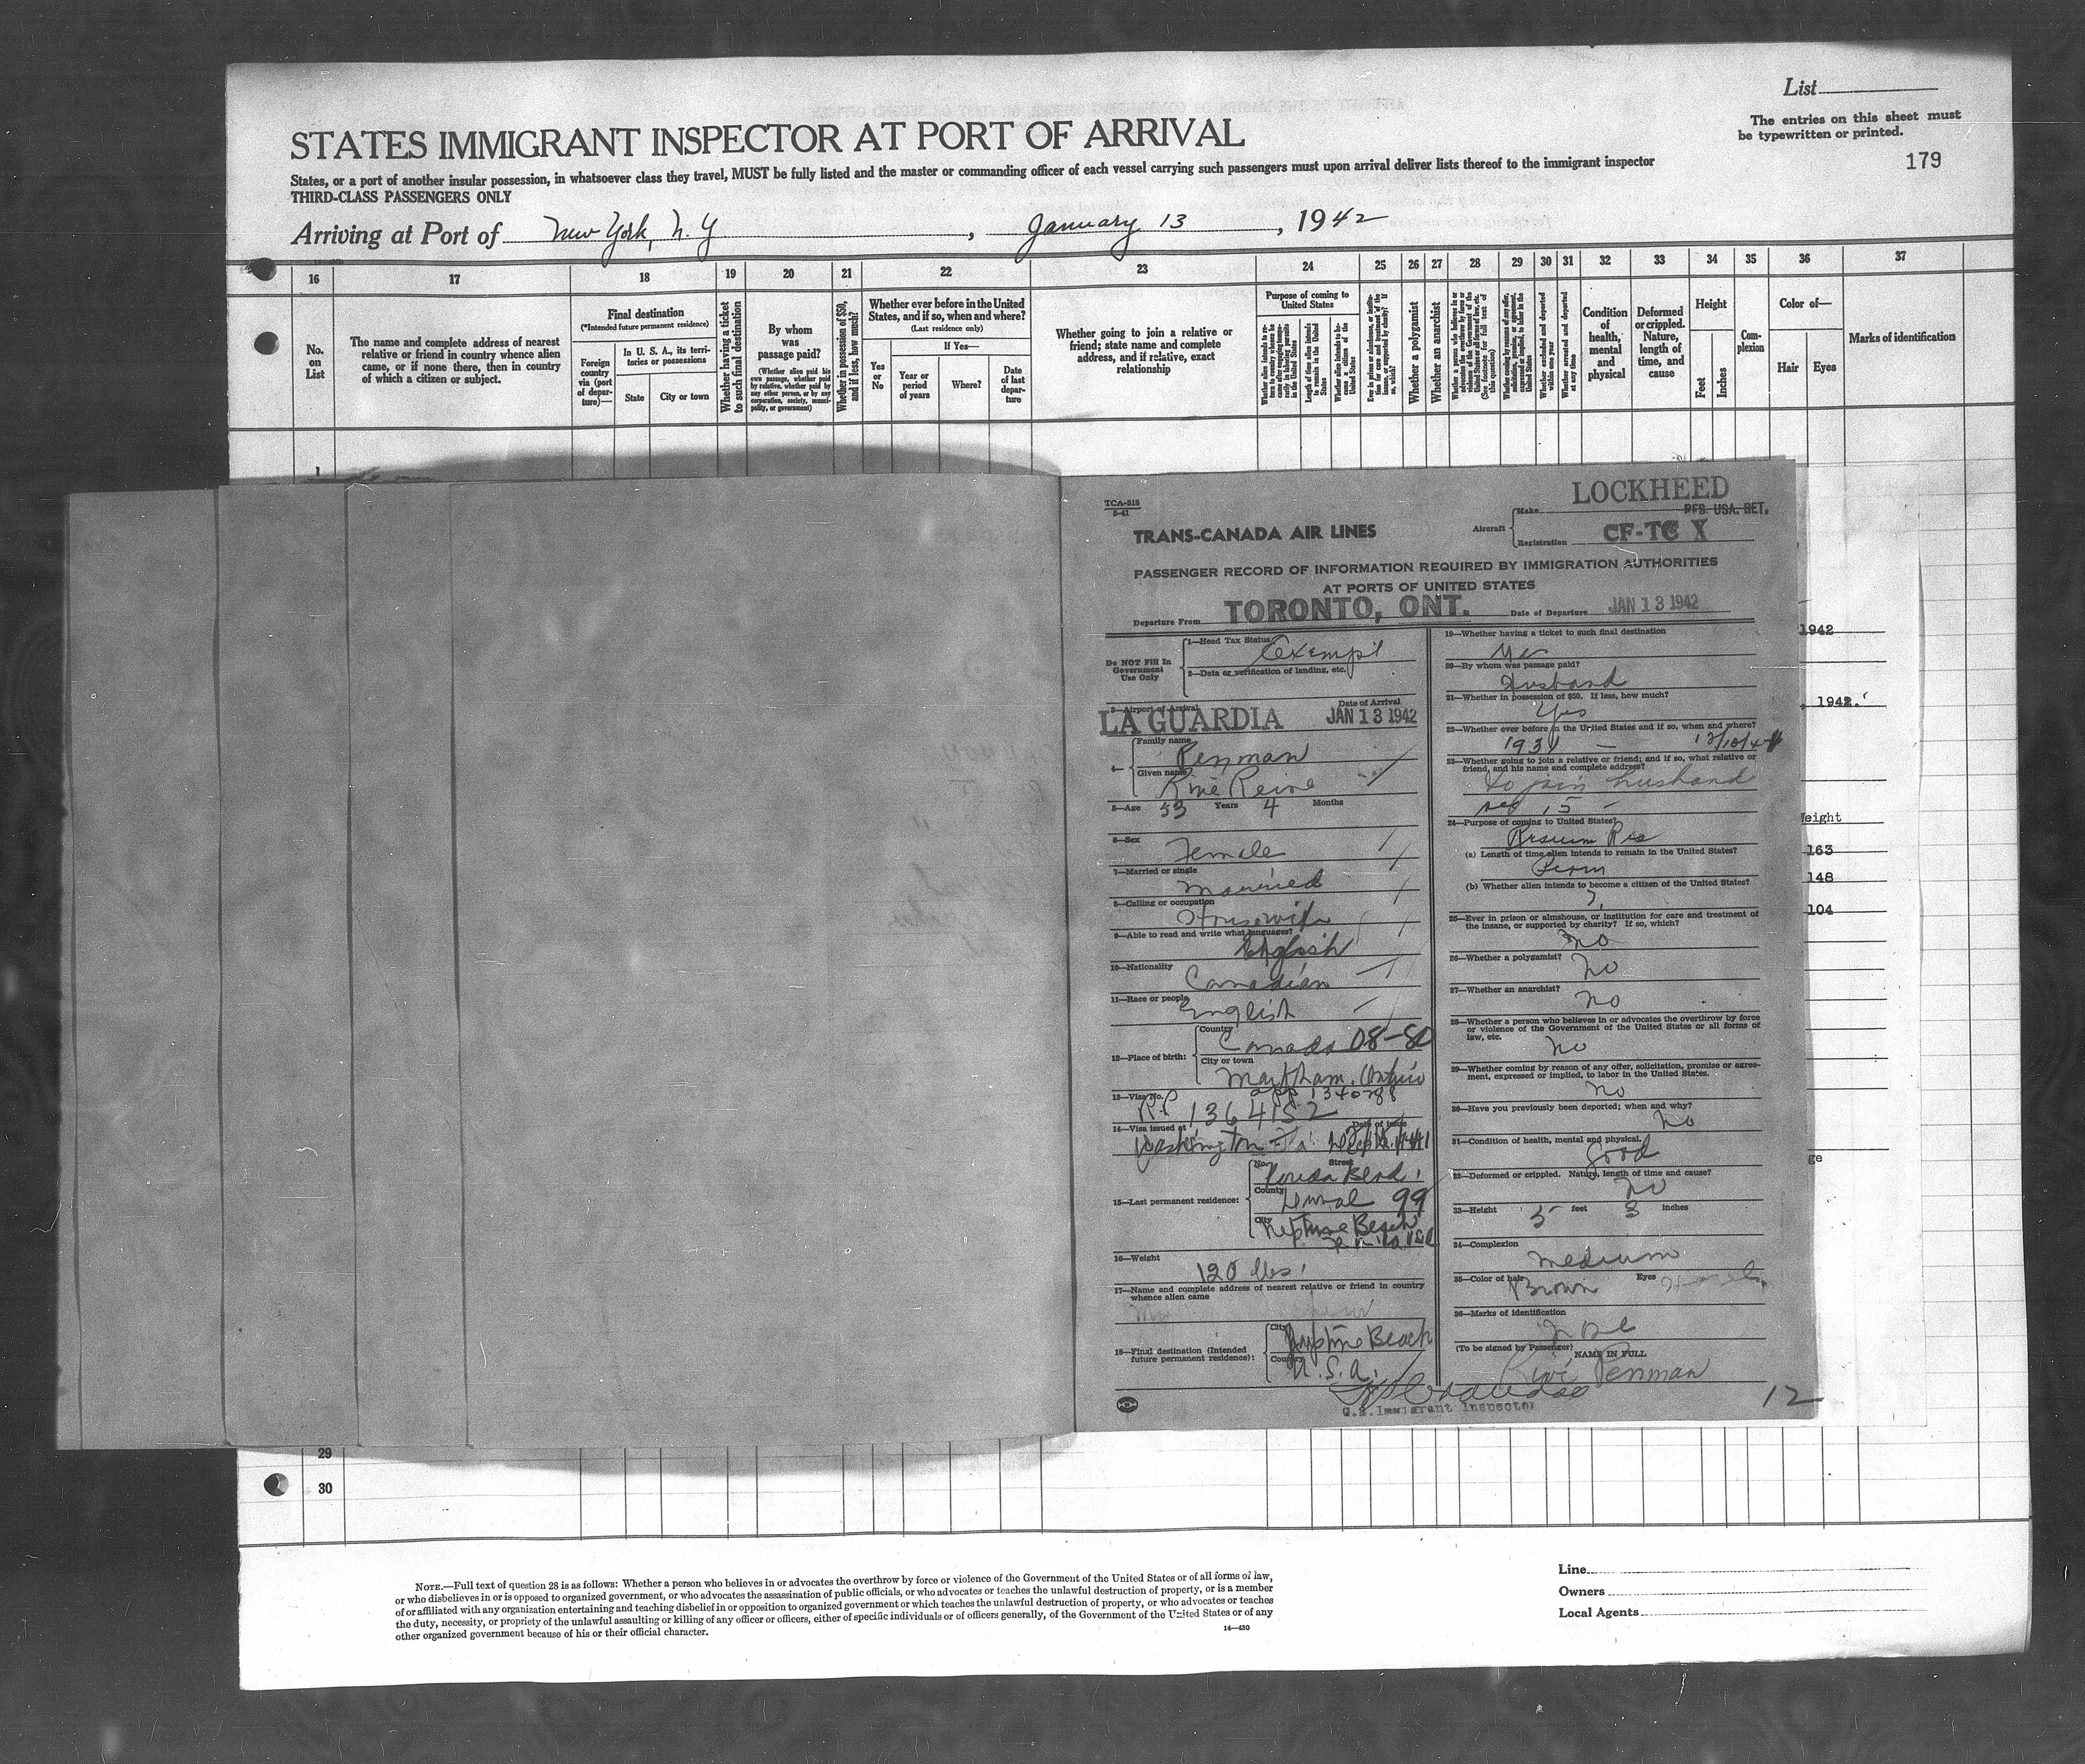 List
The entries on this sheet must
be typewritten or printed.
179
STATES IMMIGRANT INSPECTOR AT PORT OF ARRIVAL
States, or a port of another insular possession, in whatsoever class they travel, MUST be fully listed and the master or commanding officer of each vessel carrying such passengers must upon arrival deliver lists thereof to the immigrant inspector
THIRD-CLASS PASSENGERS ONLY
Arriving at Port of New York, N. Y, January 13, 1942
16 17 18 19 20 21 22 23 24 25 26 27 28 29 30 31 32 33 34 35 36 37
No. on List
The name and complete address of nearest relative or friend in country whence alien came, or if none there, then in country of which a citizen or subject.
Final destination
(*Intended future permanent residence)
Foreign country via (port of departure)—
In U. S. A., its territories or possessions
State
City or town
Whether having a ticket to such final destination
By whom was passage paid?
(Whether alien paid his own passage, whether paid by relative, whether paid by any other person, or by any corporation, society, municipality, or government)
Whether in possession of $50, and if less, how much?
Whether ever before in the United States, and if so, when and where?
(Last residence only)
If Yes—
Yes or No
Year or period of years
Where?
Date of last departure
Whether going to join a relative or friend; state name and complete address, and if relative, exact relationship
Purpose of coming to United States
Length of time alien intends to remain in the United States
Whether alien intends to become a citizen of the United States
Whether a polygamist
Whether an anarchist
Whether arrested and deported at any time
Condition of health, mental and physical
Deformed or crippled. Nature, length of time, and cause
Height
Feet
Inches
Complexion
Color of—
Hair
Eyes
Marks of identification
1
TCA-818
5-41
TRANS-CANADA AIR LINES
LOCKHEED
Aircraft
Make
PFS. USA. RET.
Registration CF-TC X
PASSENGER RECORD OF INFORMATION REQUIRED BY IMMIGRATION AUTHORITIES
AT PORTS OF UNITED STATES
Departure From TORONTO, ONT. Date of Departure JAN 13 1942
Do NOT Fill In Government Use Only
1—Head Tax Status Exempt
2—Data or verification of landing, etc.
3—Airport of Arrival LA GUARDIA
Date of Arrival JAN 13 1942
4— Family name Penman
Given name Reine
5—Age 53 Years 4 Months
6—Sex Female
7—Married or single Married
8—Calling or occupation Housewife
9—Able to read and write what languages? English
10—Nationality Canadian
11—Race or people English
12—Place of birth: Country Canada 08-80
City or town Markham, Ontario
13—Visa No. RP 1364152
14—Visa issued at Washington
Date of Issue
15—Last permanent residence: No. Street Florida Blvd.
County Duval 99
City Neptune Beach
16—Weight 120 lbs.
17—Name and complete address of nearest relative or friend in country whence alien came
18—Final destination (Intended future permanent residence): City Neptune Beach
Country U.S.A.
19—Whether having a ticket to such final destination
Yes
20—By whom was passage paid?
Husband
21—Whether in possession of $50. If less, how much?
Yes
22—Whether ever before in the United States and if so, when and where?
1931 —
23—Whether going to join a relative or friend; and if so, what relative or friend, and his name and complete address?
to join husband
15
24—Purpose of coming to United States?
Resume Res
(a) Length of time alien intends to remain in the United States?
Perm
(b) Whether alien intends to become a citizen of the United States?
25—Ever in prison or almshouse, or institution for care and treatment of the insane, or supported by charity? If so, which?
no
26—Whether a polygamist?
no
27—Whether an anarchist?
no
28—Whether a person who believes in or advocates the overthrow by force or violence of the Government of the United States or all forms of law, etc.
no
29—Whether coming by reason of any offer, solicitation, promise or agreement, expressed or implied, to labor in the United States.
no
30—Have you previously been deported; when and why?
no
31—Condition of health, mental and physical.
Good
32—Deformed or crippled. Nature, length of time and cause?
no
33—Height 5 feet 3 inches
34—Complexion
Medium
35—Color of hair Brown Eyes Hazel
36—Marks of identification
(To be signed by Passenger) NAME IN FULL
Penman
U.S. Immigrant Inspector
12
1942
1942.
Weight
163
148
104
ge
29
30
NOTE.—Full text of question 28 is as follows: Whether a person who believes in or advocates the overthrow by force or violence of the Government of the United States or of all forms of law,
or who disbelieves in or is opposed to organized government, or who advocates the assassination of public officials, or who advocates or teaches the unlawful destruction of property, or is a member
of or affiliated with any organization entertaining and teaching disbelief in or opposition to organized government or which teaches the unlawful destruction of property, or who advocates or teaches
the duty, necessity, or propriety of the unlawful assaulting or killing of any officer or officers, either of specific individuals or of officers generally, of the Government of the United States or of any
other organized government because of his or their official character.
14—430
Line
Owners
Local Agents